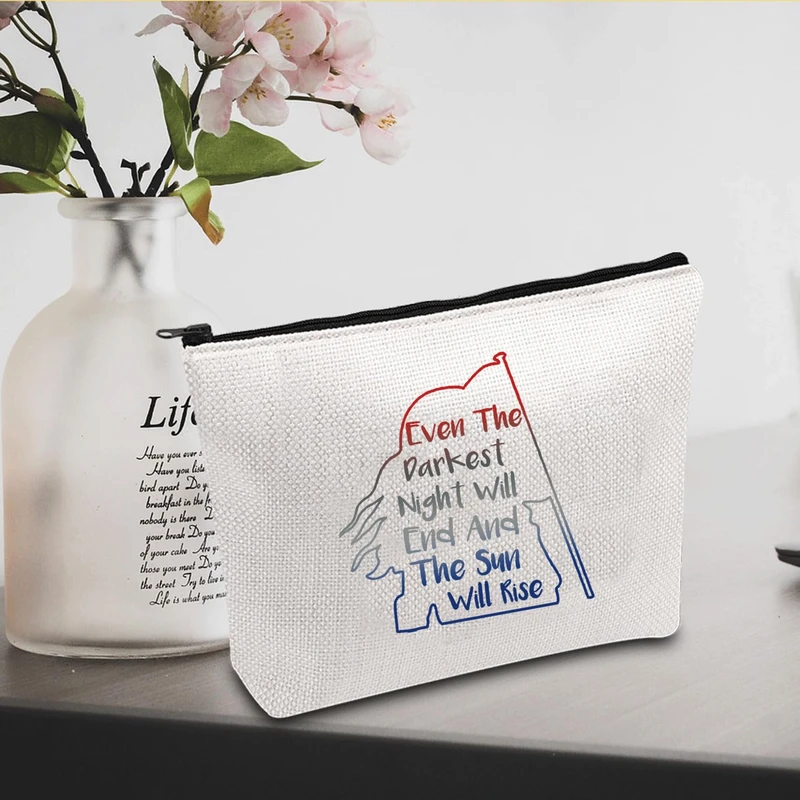 Life
Have you ever s
Have you liste
bird apart Do y
breakfast in the fr
nobody is there D
your break Do you
of your cake Are y
those you meet Do yo
the street Try to live i
Life is what you ma
Even The
Darkest
Night Will
End And
The Sun
Will Rise